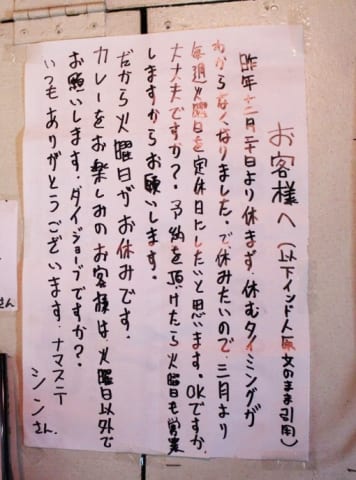 お客様へ(以下インド人原文のまま引用)
昨年十二月二十日より休まず、休むタイミングが
わからなくなりました。で休みたいので、三月より
毎週火曜日を定休日にしたいと思います。OKですか、
大丈夫ですか?。予約を頂けたら火曜日も営業
しますからお願いします。
だから火曜日がお休みです。
カレーをお楽しみのお客様は火曜日以外で
お願いします、ダイジョーブですか?。
いつもありがとうございます、ナマステー
シンさん、
さん